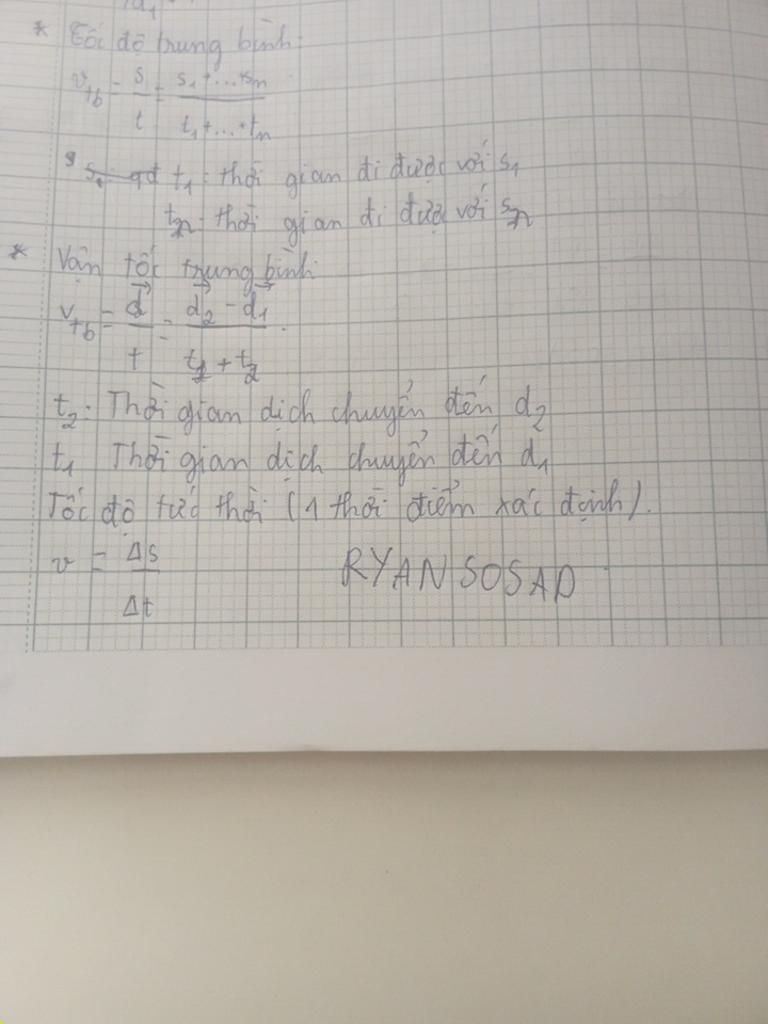 * Tốc độ trung bình:
v_tb = s/t = (s₁ + ... + sₙ)/(t₁ + ... + tₙ)
t₁: thời gian đi được với s₁
tₙ: thời gian đi được với sₙ
* Vận tốc trung bình:
v_tb = d⃗/t = (d⃗₂ - d⃗₁)/(t₁ + t₂)
t₂: Thời gian dịch chuyển đến d₂
t₁ Thời gian dịch chuyển đến d₁
Tốc độ tức thời (1 thời điểm xác định).
v = Δs/Δt
RYAN SOSAD